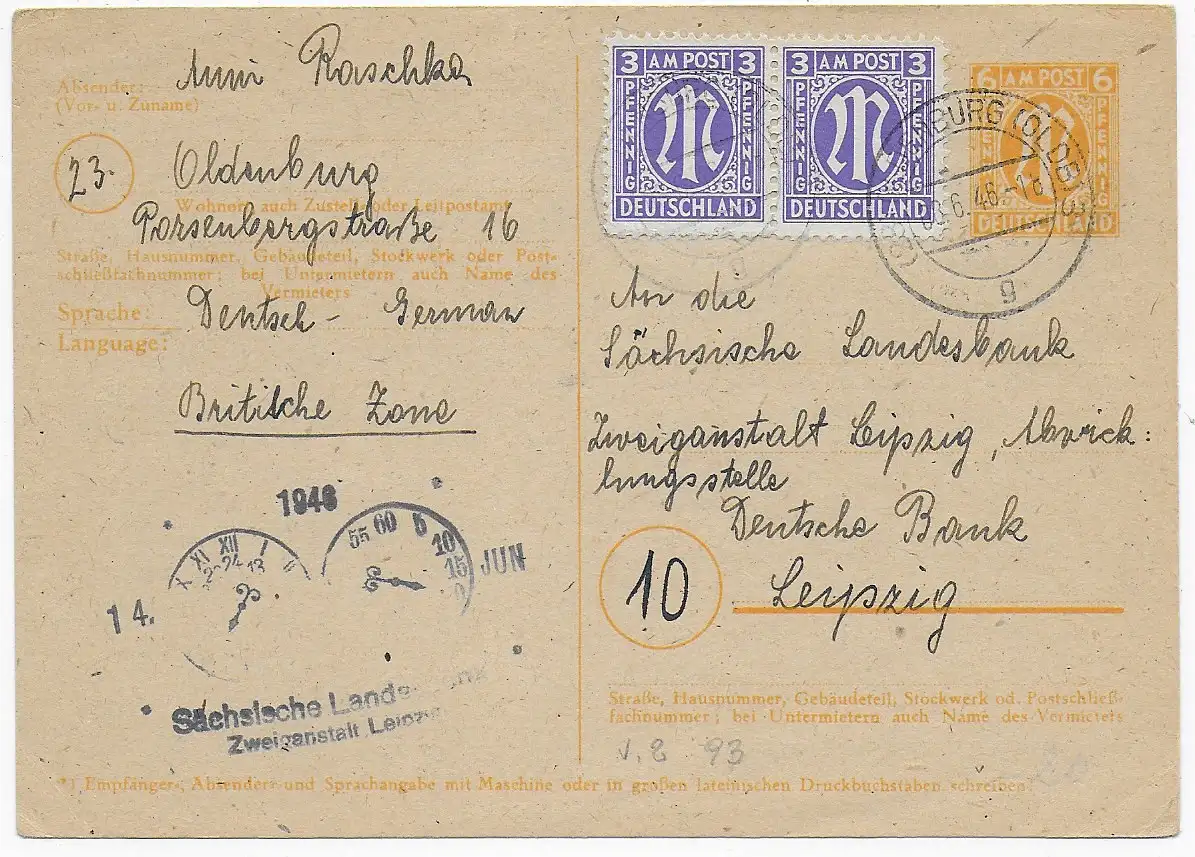 Absender:
(Vor- u. Zuname)
Anni Raschka
23.
Oldenburg
Wohnort, auch Zustell- oder Leitpostamt
Porsenbergstraße 16
Straße, Hausnummer, Gebäudeteil, Stockwerk oder Post-
schließfachnummer; bei Untermietern auch Name des
Vermieters
Sprache:
Deutsch - German
Language:
Britische Zone
1946
55 60 5 10 15
X XI XII I
24 13
14.
JUN
Sächsische Landesbank
Zweiganstalt Leipzig
3 AM POST 3
PFENNIG PFENNIG
DEUTSCHLAND
3 AM POST 3
PFENNIG PFENNIG
DEUTSCHLAND
6 AM POST 6
PFENNIG
DEUTSCHLAND
BURG (OLDB
6.46.-18
g
g
An die
Sächsische Landesbank
Zweiganstalt Leipzig, Abwick:
lungsstelle
Deutsche Bank
10
Leipzig
Straße, Hausnummer, Gebäudeteil, Stockwerk od. Postschließ-
fachnummer; bei Untermietern auch Name des Vermieters
v. 2 93
*) Empfänger-, Absender- und Sprachangabe mit Maschine oder in großen lateinischen Druckbuchstaben schreiben.